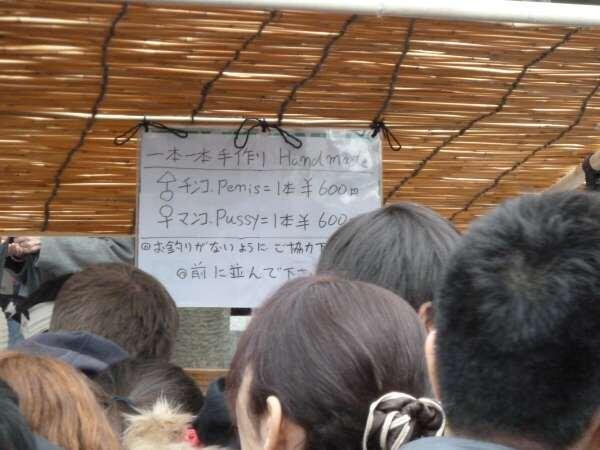 一本一本手作り Handmade
♂チンコ.Penis=1本￥600円
♀マンコ.Pussy=1本￥600
◎お釣りがないようにご協力下
◎前に並んで下さ